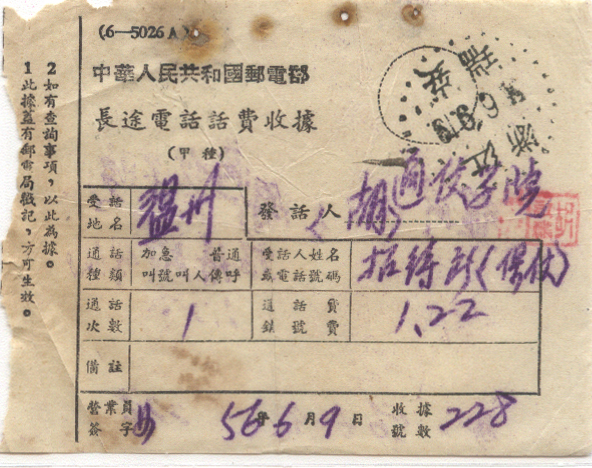 (6—5026A)
中華人民共和國郵電部
長途電話話費收據
(甲種)
受話地名
溫州
發話人
通話種類
加急 普通
叫號 叫人 傳呼
受話人姓名或電話號碼
招待所
通話次數
1
通話費
銷號費
1.22
備註
營業員簽字
56年6月9日
收據號數
228
2如有查詢事項,以此為據。
1此據蓋有郵電局戳記,方可生效。
瑞安
浙江